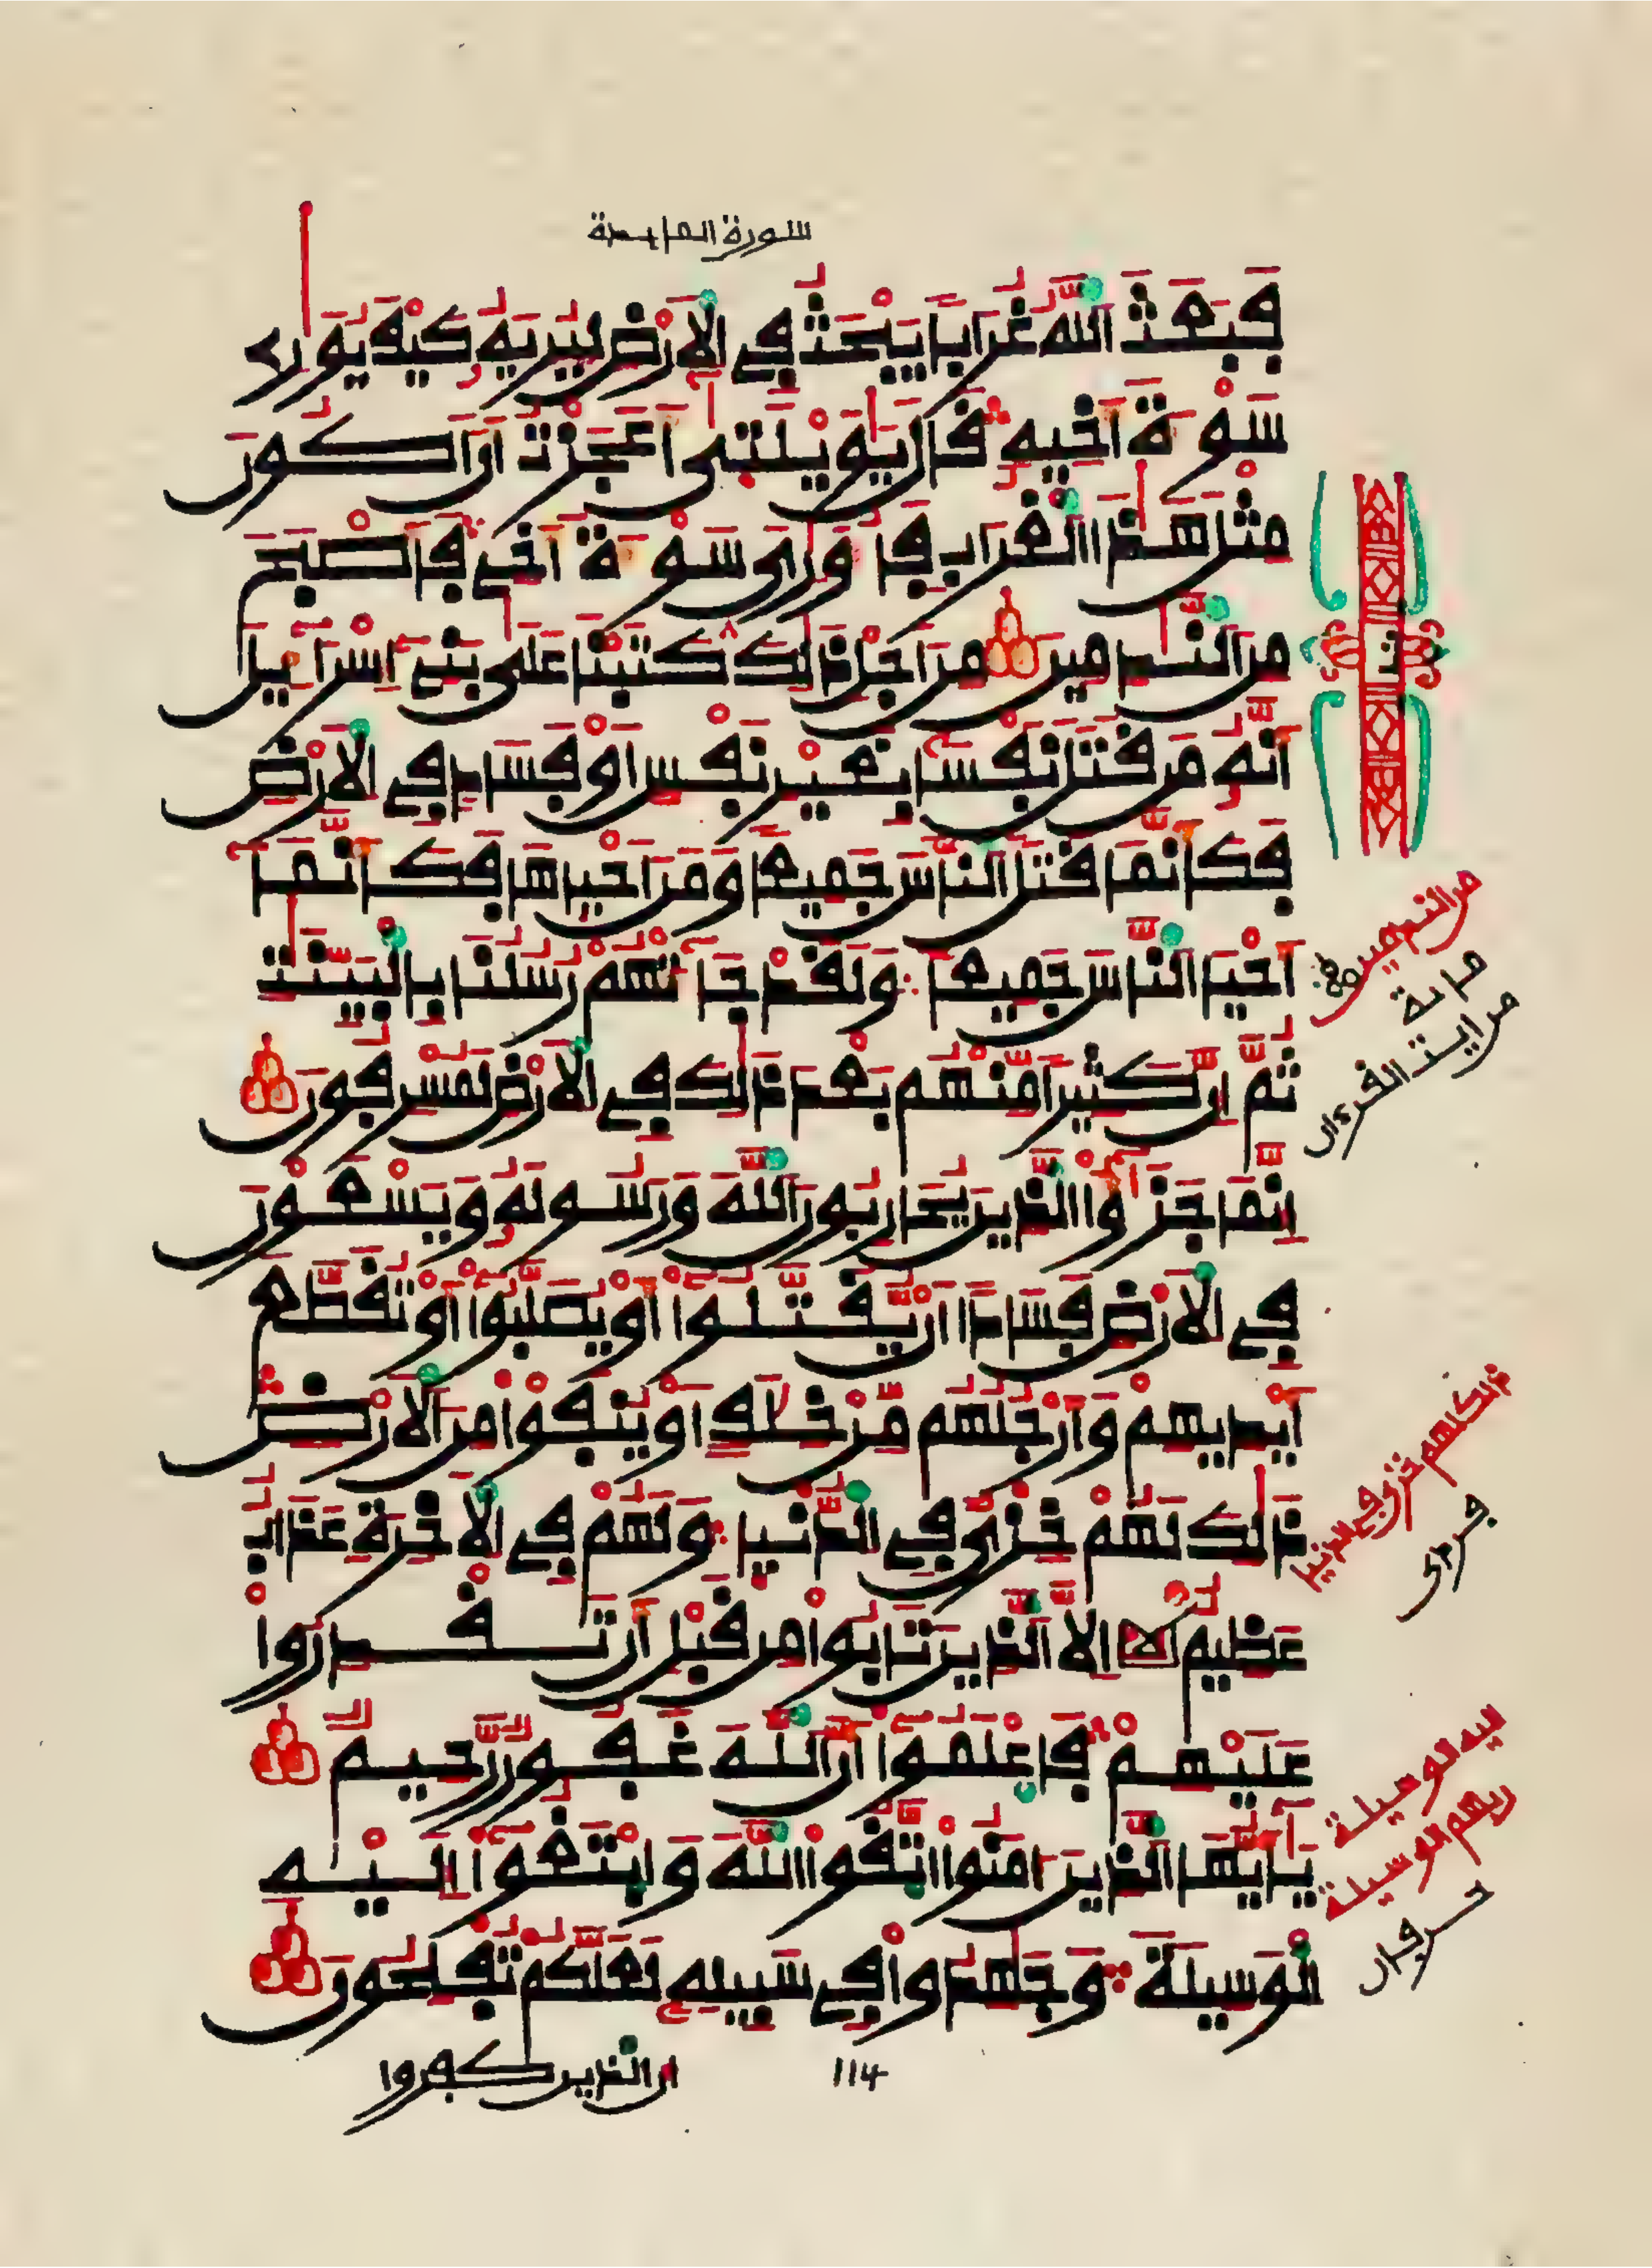 سورة المايدة
فَبَعَثَ اَللَّهُ غُرَاباً يَبْحَثُ فِي اِلَارْضِ لِيُرِيَهُۥ كَيْفَ يُوَٰرِے
سَوْءَةَ أَخِيهِ قَالَ يَٰوَيْلَتَىٰ أَعَجَزْتُ أَنَ اَكُونَ
مِثْلَ هَٰذَا اَلْغُرَابِ فَأُوَٰرِيَ سَوْءَةَ أَخِے فَأَصْبَحَ
مِنَ اَلنَّٰدِمِينَ مِنَ اَجْلِ ذَٰلِكَ كَتَبْنَا عَلَىٰ بَنِے إِسْرَآءِيلَ
أَنَّهُۥ مَن قَتَلَ نَفْساً بِغَيْرِ نَفْسٍ اَوْ فَسَادٍ فِي اِلَارْضِ
فَكَأَنَّمَا قَتَلَ اَلنَّاسَ جَمِيعاً وَمَنَ اَحْيَاهَا فَكَأَنَّمَا
أَحْيَا اَلنَّاسَ جَمِيعاً وَلَقَدْ جَآءَتْهُمْ رُسُلُنَا بِالْبَيِّنَٰتِ
ثُمَّ إِنَّ كَثِيراً مِّنْهُم بَعْدَ ذَٰلِكَ فِي اِلَارْضِ لَمُسْرِفُونَ
إِنَّمَا جَزَٰٓؤُاْ اُلذِينَ يُحَارِبُونَ اَللَّهَ وَرَسُولَهُۥ وَيَسْعَوْنَ
فِي اِلَارْضِ فَسَاداً أَنْ يُّقَتَّلُوٓاْ أَوْ يُصَلَّبُوٓاْ أَوْ تُقَطَّعَ
أَيْدِيهِمْ وَأَرْجُلُهُم مِّنْ خِلَٰفٍ اَوْ يُنفَوْاْ مِنَ اَلَارْضِ
ذَٰلِكَ لَهُمْ خِزْيٌ فِي اِلدُّنْيَا وَلَهُمْ فِي اِلَاخِرَةِ عَذَابٌ
عَظِيمٌ لا اِلَّا اَلذِينَ تَابُواْ مِن قَبْلِ أَن تَقْدِرُواْ
عَلَيْهِمْ فَاعْلَمُوٓاْ أَنَّ اَللَّهَ غَفُورٌ رَّحِيمٌ
يَٰٓأَيُّهَا اَلذِينَ ءَامَنُواْ اُتَّقُواْ اُللَّهَ وَابْتَغُوٓاْ إِلَيْهِ
اِلْوَسِيلَةَ وَجَٰهِدُواْ فِے سَبِيلِهِۦ لَعَلَّكُمْ تُفْلِحُونَ
114
ان الذين كفروا
من الندمين
ماية
من ايت القرءان
ذلك لهم خزي في الدنيا
اليه الوسيلة
ربهم الوسيلة
حرفان